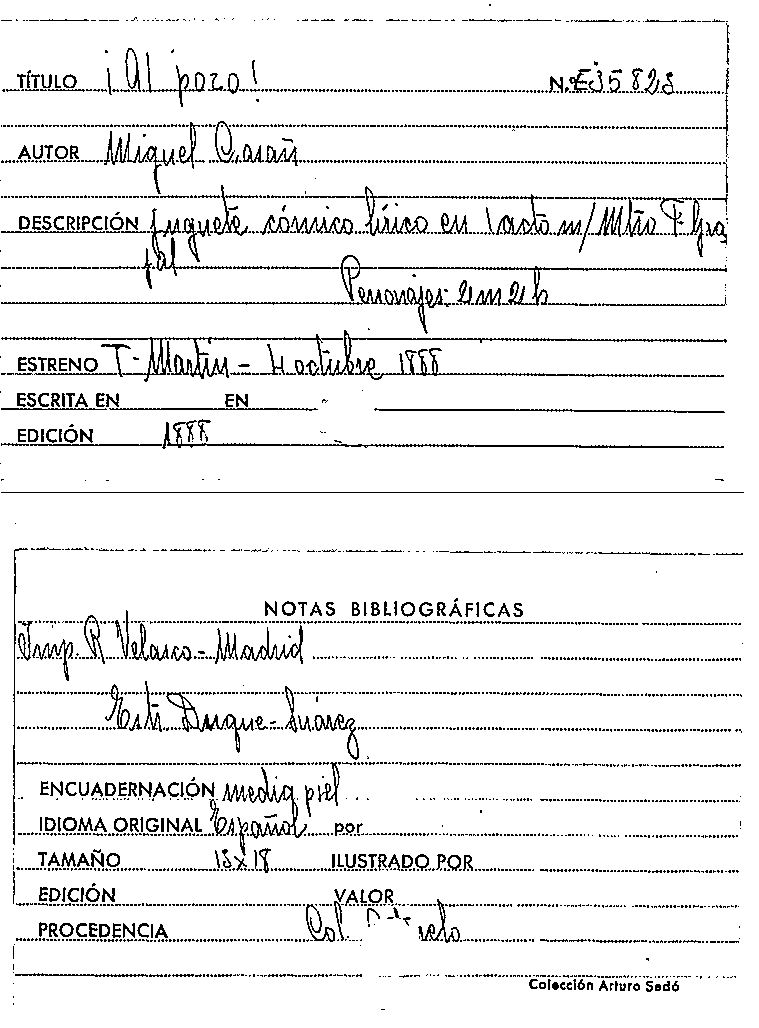 TÍTULO ¡Al pozo! N.º E35828
AUTOR Miguel Casañ
DESCRIPCIÓN Juguete cómico lírico en 1 acto m/ Mtro F. Gra
jal
Personajes: 2m 2h
ESTRENO T- Martín - 4 octubre 1888
ESCRITA EN EN
EDICIÓN 1888
NOTAS BIBLIOGRÁFICAS
Imp. R Velasco - Madrid
Estr. Duque - Suárez
ENCUADERNACIÓN media piel
IDIOMA ORIGINAL Español por
TAMAÑO 13x18 ILUSTRADO POR
EDICIÓN VALOR
PROCEDENCIA Col.
Colección Arturo Sedó